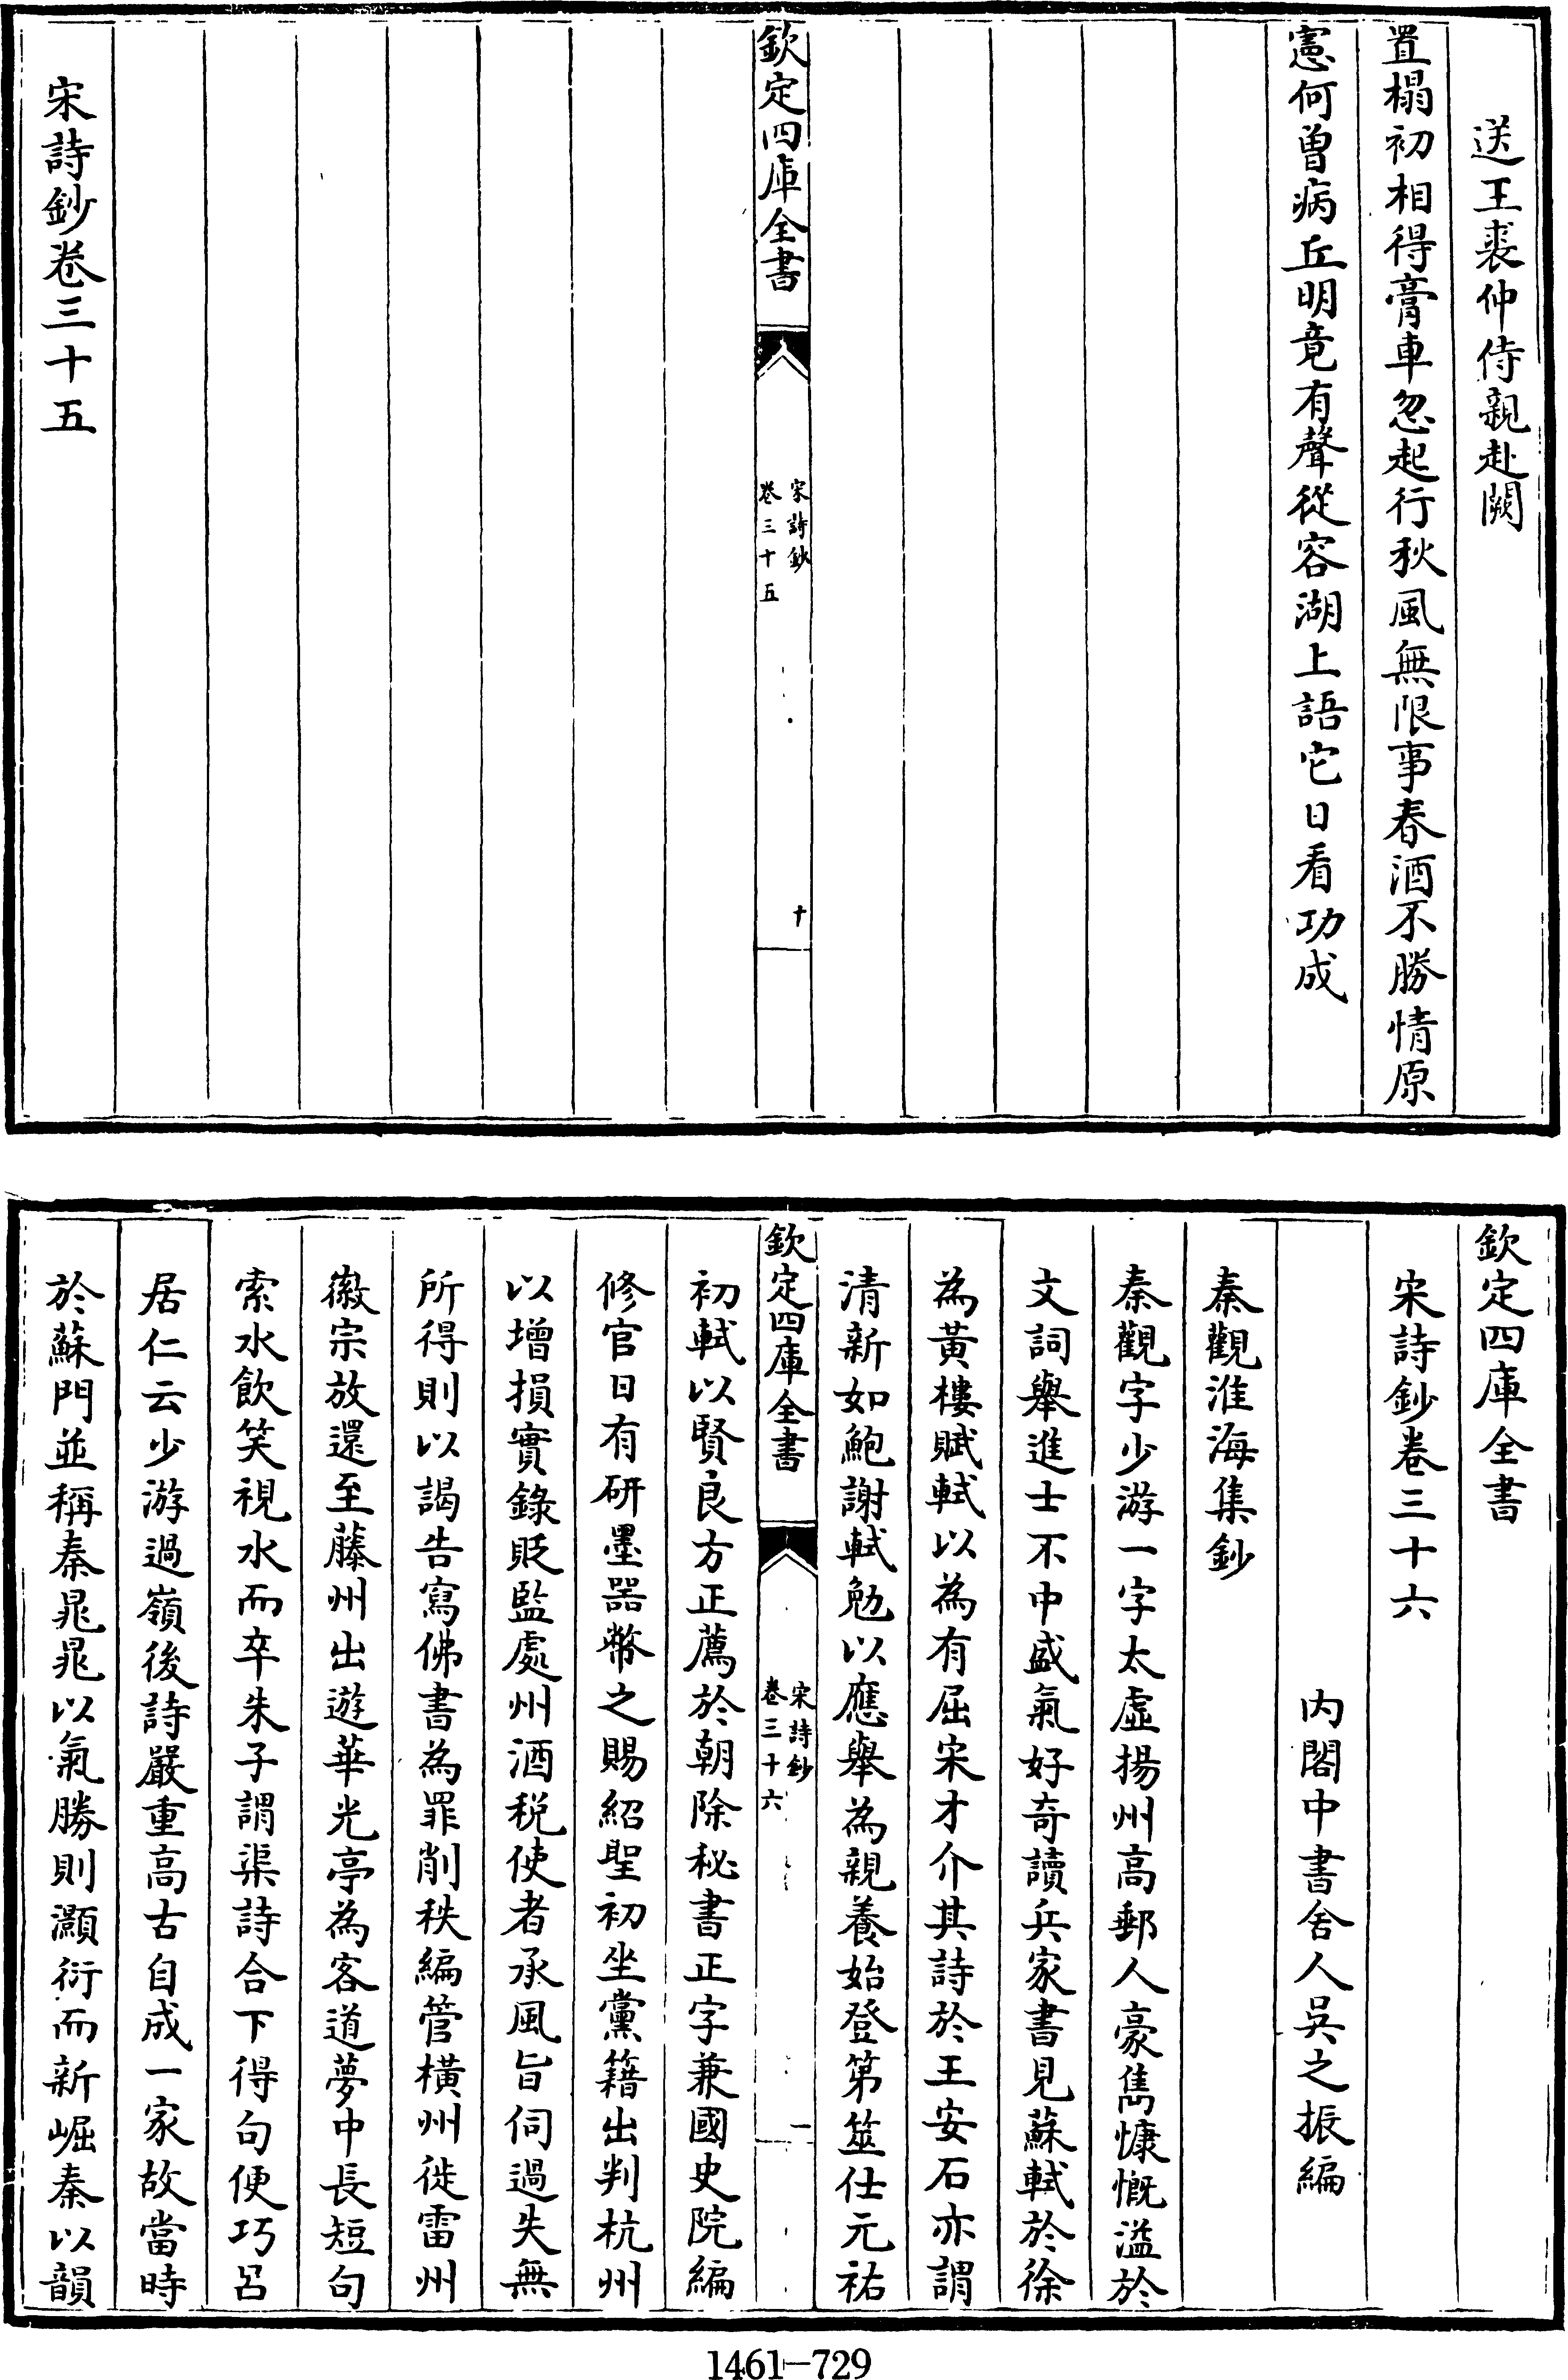 送王裘仲侍親赴闕
置榻初相得膏車忽起行秋風無限事春酒不勝情原
憲何曾病丘明竟有聲從容湖上語它日看功成
欽定四庫全書
宋詩鈔
卷三十五
十
宋詩鈔卷三十五
欽定四庫全書
宋詩鈔卷三十六
内閣中書舍人吳之振編
秦觀淮海集鈔
秦觀字少游一字太虛揚州高郵人豪雋慷慨溢於
文詞舉進士不中盛氣好奇讀兵家書見蘇軾於徐
為黃樓賦軾以為有屈宋才介其詩於王安石亦謂
清新如鮑謝軾勉以應舉為親養始登第筮仕元祐
欽定四庫全書
宋詩鈔
卷三十六
一
初軾以賢良方正薦於朝除秘書正字兼國史院編
修官日有研墨器幣之賜紹聖初坐黨籍出判杭州
以增損實錄貶監處州酒稅使者承風旨伺過失無
所得則以謁告寫佛書為罪削秩編管橫州徙雷州
徽宗放還至藤州出遊華光亭為客道夢中長短句
索水飲笑視水而卒朱子謂渠詩合下得句便巧呂
居仁云少游過嶺後詩嚴重高古自成一家故當時
於蘇門並稱秦晁晁以氣勝則灝衍而新崛秦以韻
1461-729